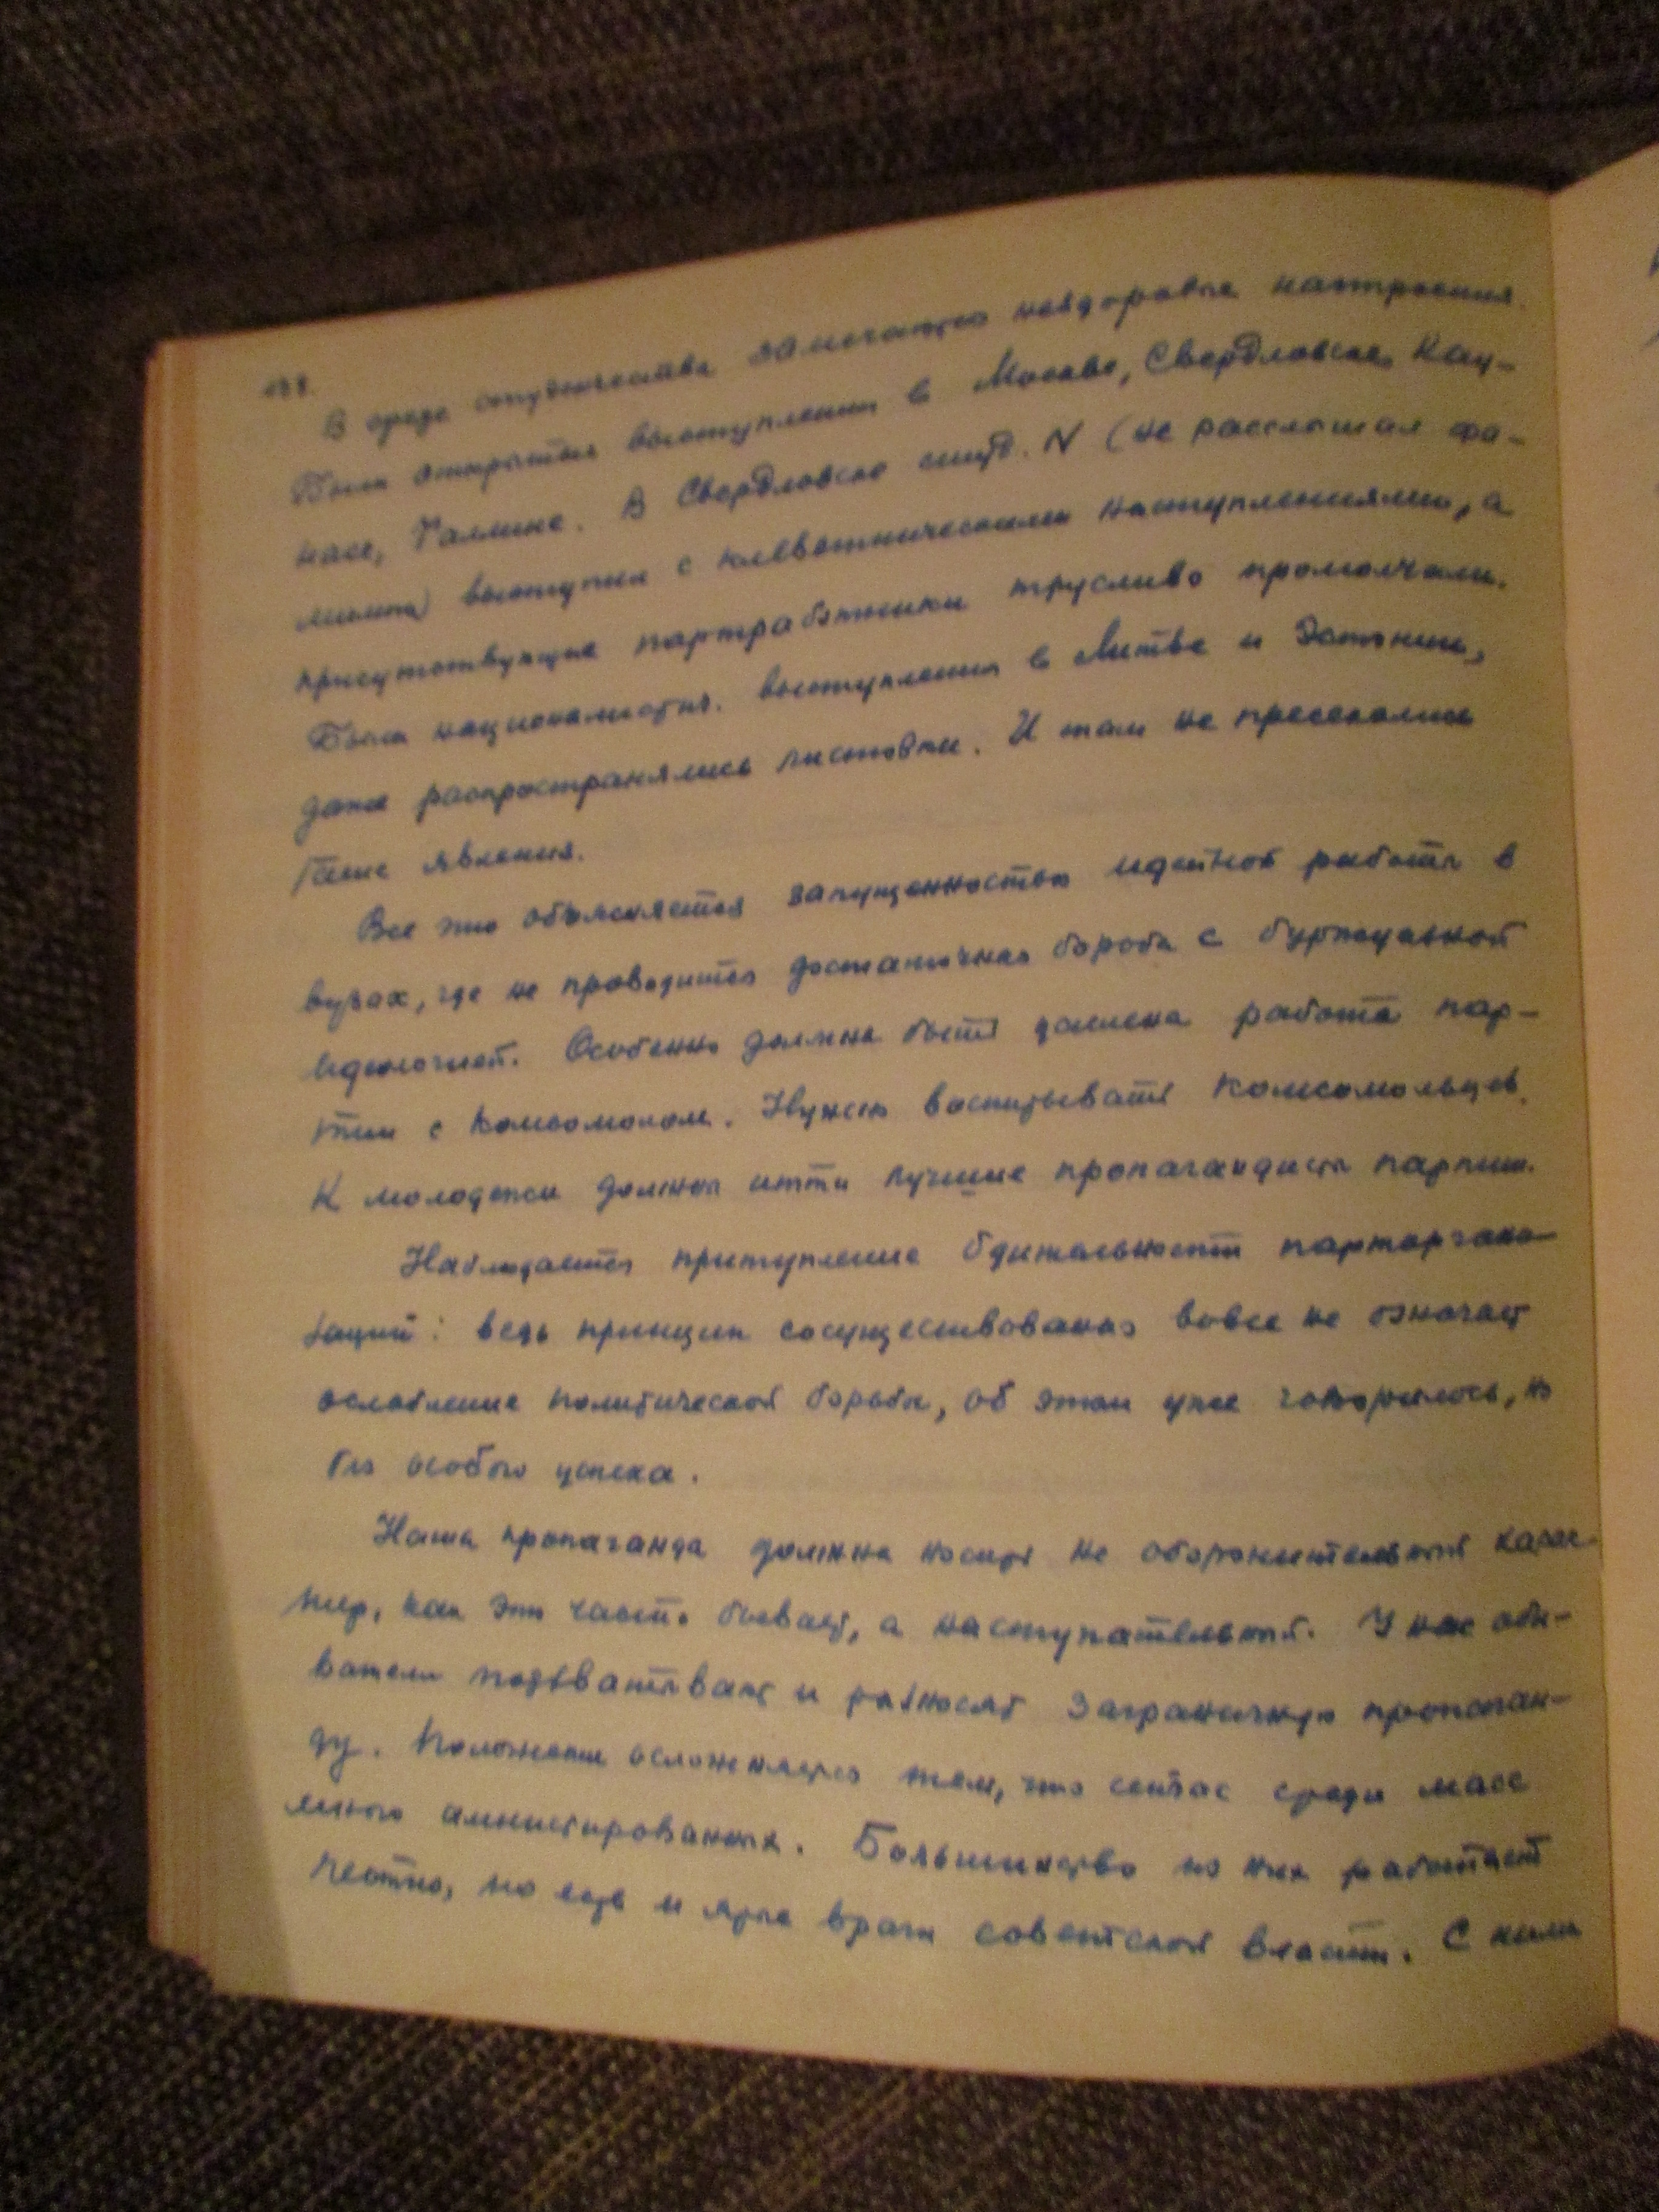 В среде студенчества замечаются нездоровые настроения.
Были открытые выступления в Москве, Свердловске, Кау-
насе, Таллине. В Свердловске студ. N (не расслышал фа-
милии) выступил с клеветническими наступлениями, а
присутствующие партработники трусливо промолчали.
Были националистич. выступления в Литве и Эстонии,
даже распространялись листовки. И там не пресекались
такие явления.
Все это объясняется запущенностью идейной работы в
вузах, где не проводится достаточная борьба с буржуазной
идеологией. Особенно должна быть усилена работа пар-
тии с комсомолом. Нужно воспитывать комсомольцев.
К молодежи должны итти лучшие пропагандисты партии.
Наблюдается притупление бдительности парторгани-
заций: ведь принцип сосуществования вовсе не означает
ослабление политической борьбы, об этом уже говорилось, но
без особого успеха.
Наша пропаганда должна носить не оборонительный харак-
тер, как это часто бывает, а наступательный. У нас обы-
ватели подхватывают и разносят заграничную пропаган-
ду. Положение осложняется тем, что сейчас среди масс
много амнистированных. Большинство из них работает
честно, но есть и ярые враги советской власти. С ними